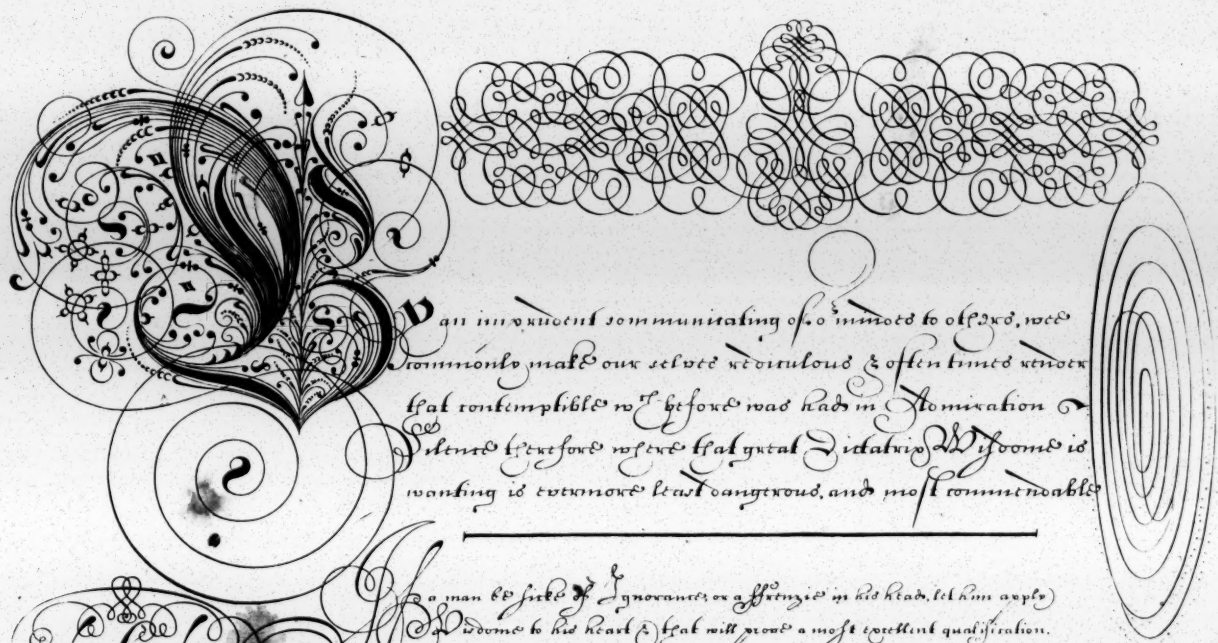 By an imprudent communicating of oʳ mindes to others, wee
commonly make our selves rediculous & often times render
that contemptible wᶜʰ before was had in Admiration
Silence therefore where that great Dictatrix Wisdome is
wanting is evermore least dangerous, and most commendable
a man be sicke of Ignorance, or a ffrenzie in his head, let him apply
Wisdome to his heart & that will prove a most excellent qualification.